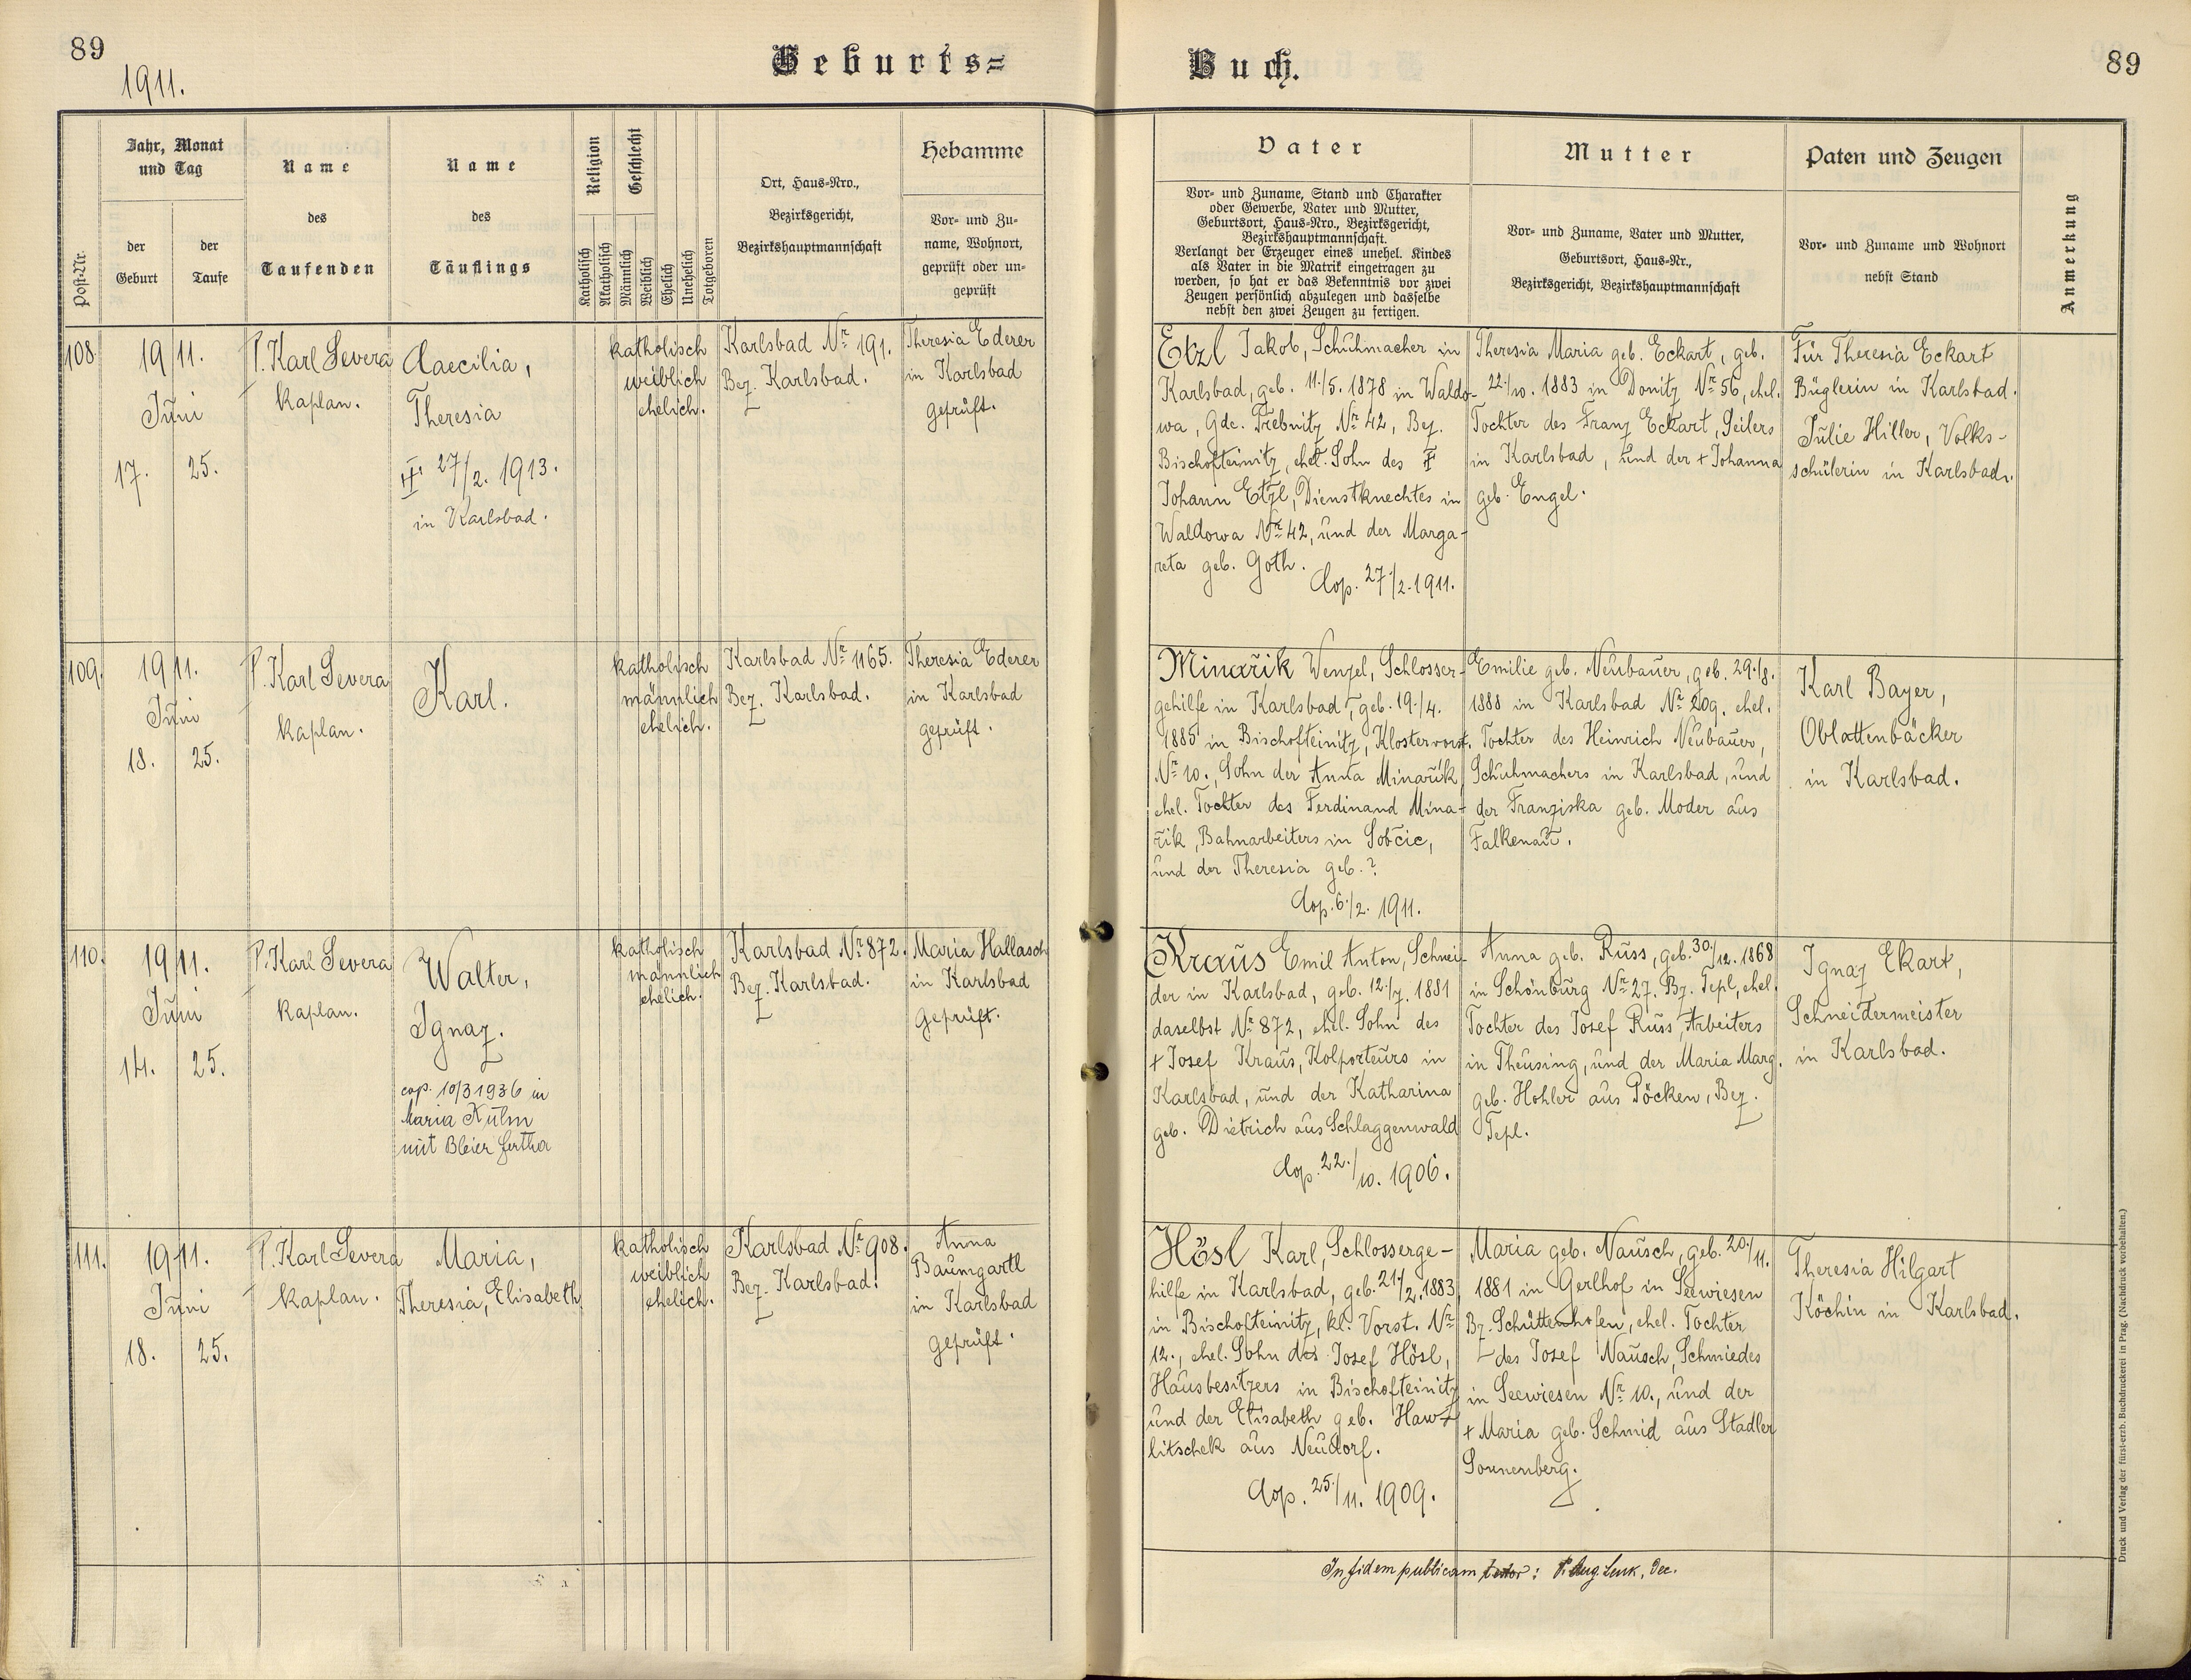 89
1911.
Geburts=
Buch.
89
Post-Nr.
Jahr, Monat
und Tag
der
Geburt
der
Taufe
Name
des
Taufenden
Name
des
Täuflings
Religion
Katholisch
Akatholisch
Geschlecht
Männlich
Weiblich
Ehelich
Unehelich
Totgeboren
Ort, Haus-Nro.,
Bezirksgericht,
Bezirkshauptmannschaft
Hebamme
Vor- und Zu-
name, Wohnort,
geprüft oder un-
geprüft
Vater
Vor- und Zuname, Stand und Charakter
oder Gewerbe, Vater und Mutter,
Geburtsort, Haus-Nro., Bezirksgericht,
Bezirkshauptmannschaft.
Verlangt der Erzeuger eines unehel. Kindes
als Vater in die Matrik eingetragen zu
werden, so hat er das Bekenntnis vor zwei
Zeugen persönlich abzulegen und dasselbe
nebst den zwei Zeugen zu fertigen.
Mutter
Vor- und Zuname, Vater und Mutter,
Geburtsort, Haus-Nr.,
Bezirksgericht, Bezirkshauptmannschaft
Paten und Zeugen
Vor- und Zuname und Wohnort
nebst Stand
Anmerkung
108.
1911.
Juni
17. 25.
P. Karl Severa
Kaplan.
Caecilia,
Theresia
27/2. 1913.
in Karlsbad.
katholisch
weiblich
ehelich.
Karlsbad Nr. 191.
Bez. Karlsbad.
Theresia Ederer
in Karlsbad
geprüft.
Etzl Jakob, Schuhmacher in
Karlsbad, geb. 11./5. 1878 in Waldo-
wa, Gde. Trebnitz Nr. 42, Bez.
Bischofteinitz, ehel. Sohn des †
Johann Etzl, Dienstknechtes in
Waldowa Nr. 42, und der Marga-
reta geb. Goth.
Cop. 27./2. 1911.
Theresia Maria geb. Eckart, geb.
22./10. 1883 in Donitz Nr. 56, ehel.
Tochter des Franz Eckart, Seilers
in Karlsbad, und der + Johanna
geb. Engel.
Für Theresia Eckart
Büglerin in Karlsbad.
Julie Hiller, Volks-
schülerin in Karlsbad.
109.
1911.
Juni
18. 25.
P. Karl Severa
Kaplan.
Karl.
katholisch
männlich
ehelich.
Karlsbad Nr. 1165.
Bez. Karlsbad.
Theresia Ederer
in Karlsbad
geprüft.
Minařik Wenzel, Schlosser-
gehilfe in Karlsbad, geb. 19./4.
1885 in Bischofteinitz, Klostervorst.
Nr. 10., Sohn der Anna Minařik,
ehel. Tochter des Ferdinand Mina-
řik, Bahnarbeiters in Sobčic,
und der Theresia geb. ?
Cop. 6./2. 1911.
Emilie geb. Neubauer, geb. 29./8.
1888 in Karlsbad Nr. 209. ehel.
Tochter des Heinrich Neubauer,
Schuhmachers in Karlsbad, und
der Franziska geb. Moder aus
Falkenau.
Karl Bayer,
Oblattenbäcker
in Karlsbad.
110.
1911.
Juni
14. 25.
P. Karl Severa
Kaplan.
Walter,
Ignaz.
cop. 10/3 1936 in
Maria Kulm
mit Bleier Hertha
katholisch
männlich
ehelich.
Karlsbad Nr. 872.
Bez. Karlsbad.
Maria Hallasch
in Karlsbad
geprüft.
Kraus Emil Anton, Schnei-
der in Karlsbad, geb. 12./7. 1881
daselbst Nr. 872, ehel. Sohn des
+ Josef Kraus, Kolporteurs in
Karlsbad, und der Katharina
geb. Dietrich aus Schlaggenwald
Cop. 22./10. 1906.
Anna geb. Russ, geb. 30./12. 1868
in Schönburg Nr. 27. Bz. Tepl, ehel.
Tochter des Josef Russ, Arbeiters
in Theusing, und der Maria Marg.
geb. Hohler aus Pöcken, Bez.
Tepl.
Ignaz Ekart,
Schneidermeister
in Karlsbad.
111.
1911.
Juni
18. 25.
P. Karl Severa
Kaplan.
Maria,
Theresia, Elisabeth
katholisch
weiblich
ehelich.
Karlsbad Nr. 908.
Bez. Karlsbad.
Anna
Baumgartl
in Karlsbad
geprüft.
Hösl Karl, Schlosserge-
hilfe in Karlsbad, geb. 21./2. 1883,
in Bischofteinitz, kl. Vorst. Nr.
12., ehel. Sohn des Josef Hösl,
Hausbesitzers in Bischofteinitz
und der Elisabeth geb. Haw-
litschek aus Neudorf.
Cop. 25./11. 1909.
Maria geb. Nausch, geb. 20./11.
1881 in Gerlhof in Seewiesen
Bz. Schüttenhofen, ehel. Tochter
des Josef Nausch, Schmiedes
in Seewiesen Nr. 10., und der
+ Maria geb. Schmid aus Stadler
Sonnenberg.
Theresia Hilgart
Köchin in Karlsbad.
In fidem publicam testor: P. Aug. Lenk, Dec.
Druck und Verlag der fürst-erzb. Buchdruckerei in Prag. (Nachdruck vorbehalten.)